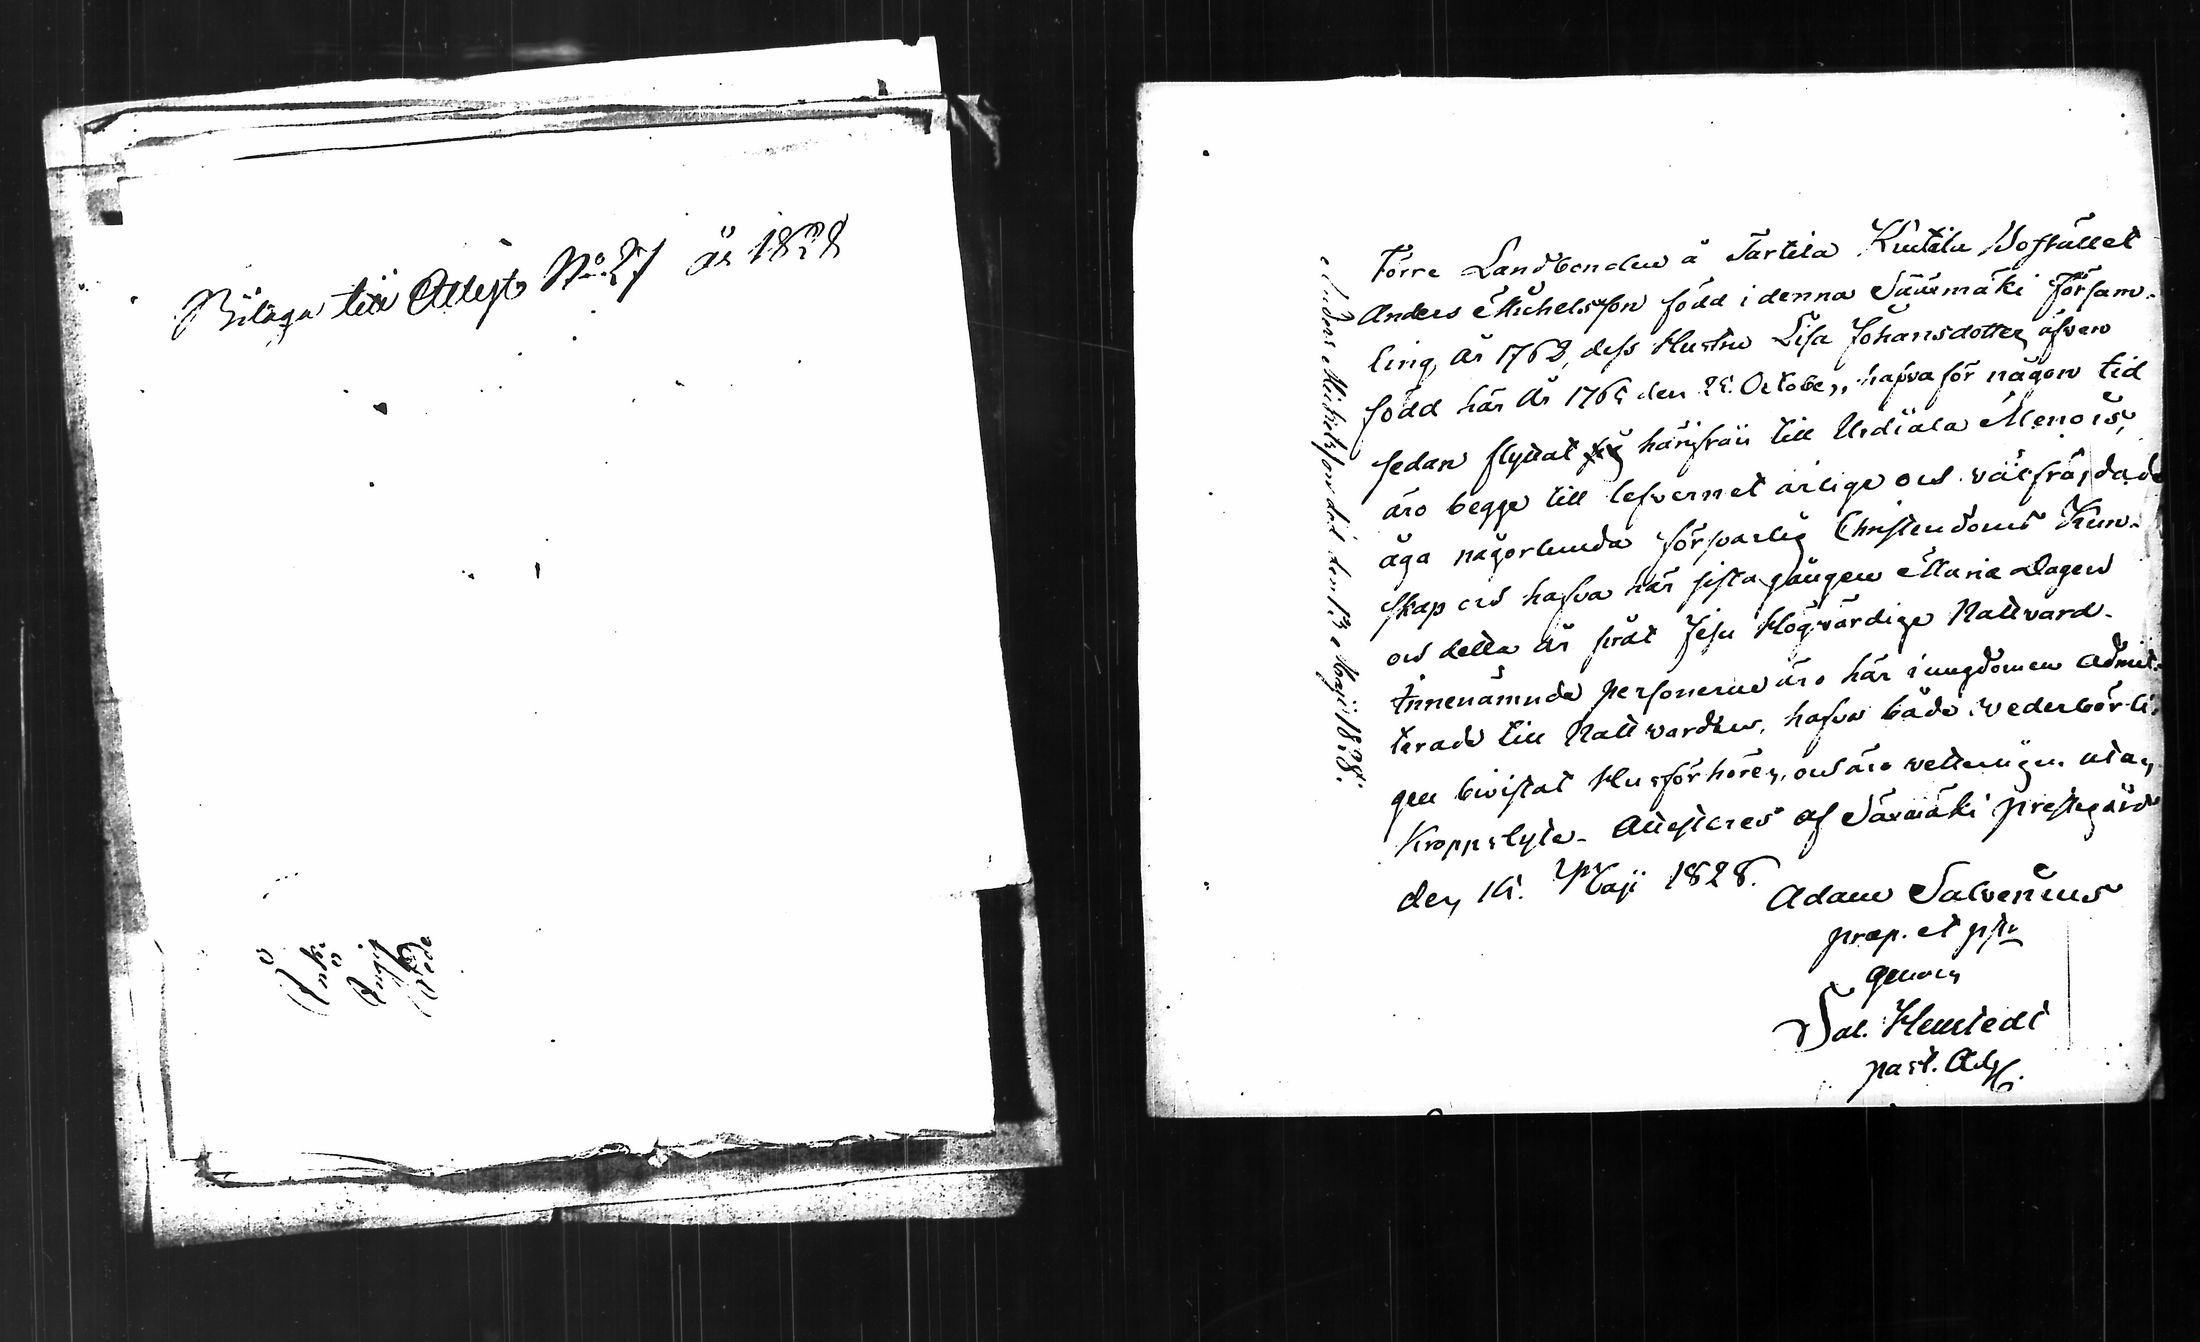 Bilaga till Attest No 27 år 1828
Förre Landbonden å Tartila Knutila Wofstället
Anders Michelsson född i denna Säärmäki Försam-
ling År 1762, dess Hustru Lisa Johansdotter äfven
född här År 1765 den 25. October, hafva för någon tid
sedan flyttat härifrån till Urdiala Menois,
äro begge till lefvernet ärlige och välfrägdade
äga någorlunda försvarlig Christendoms Kun-
skap och hafva här sista gången Mariæ Dagen
och detta år firat Jesu Högvärdige Nattvard-
Innenämnde personerne äro här i ungdomen admit-
terade till Nattvarden, hafva både wederbörli-
gen bivistat Husförhören, och äro vetterligen utan
Kroppslyte- Attesteres af Säärmäki prestegård
den 16. Maji 1828.
Adam Salvenius
præp. et pstr
genom
Sal. Hemstedt
past. Adj.
Anders Michelsson död den 13 Maji 1828.